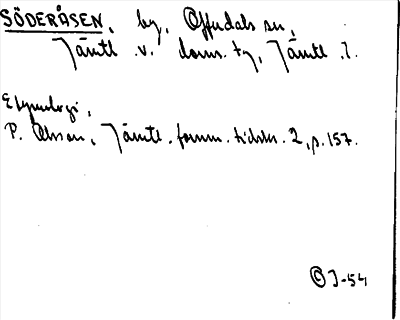 SÖDERÅSEN, by, Offerdals sn,
Jämtl. v. doms. tg, Jämtl. l.
Etymologi,
P. Olsson, Jämtl. fornm. tidskr. 2, p. 157.
© J-54